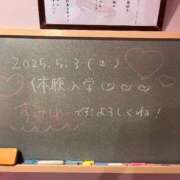 2025.5.3(土)
体験入学
です!よろしくね!